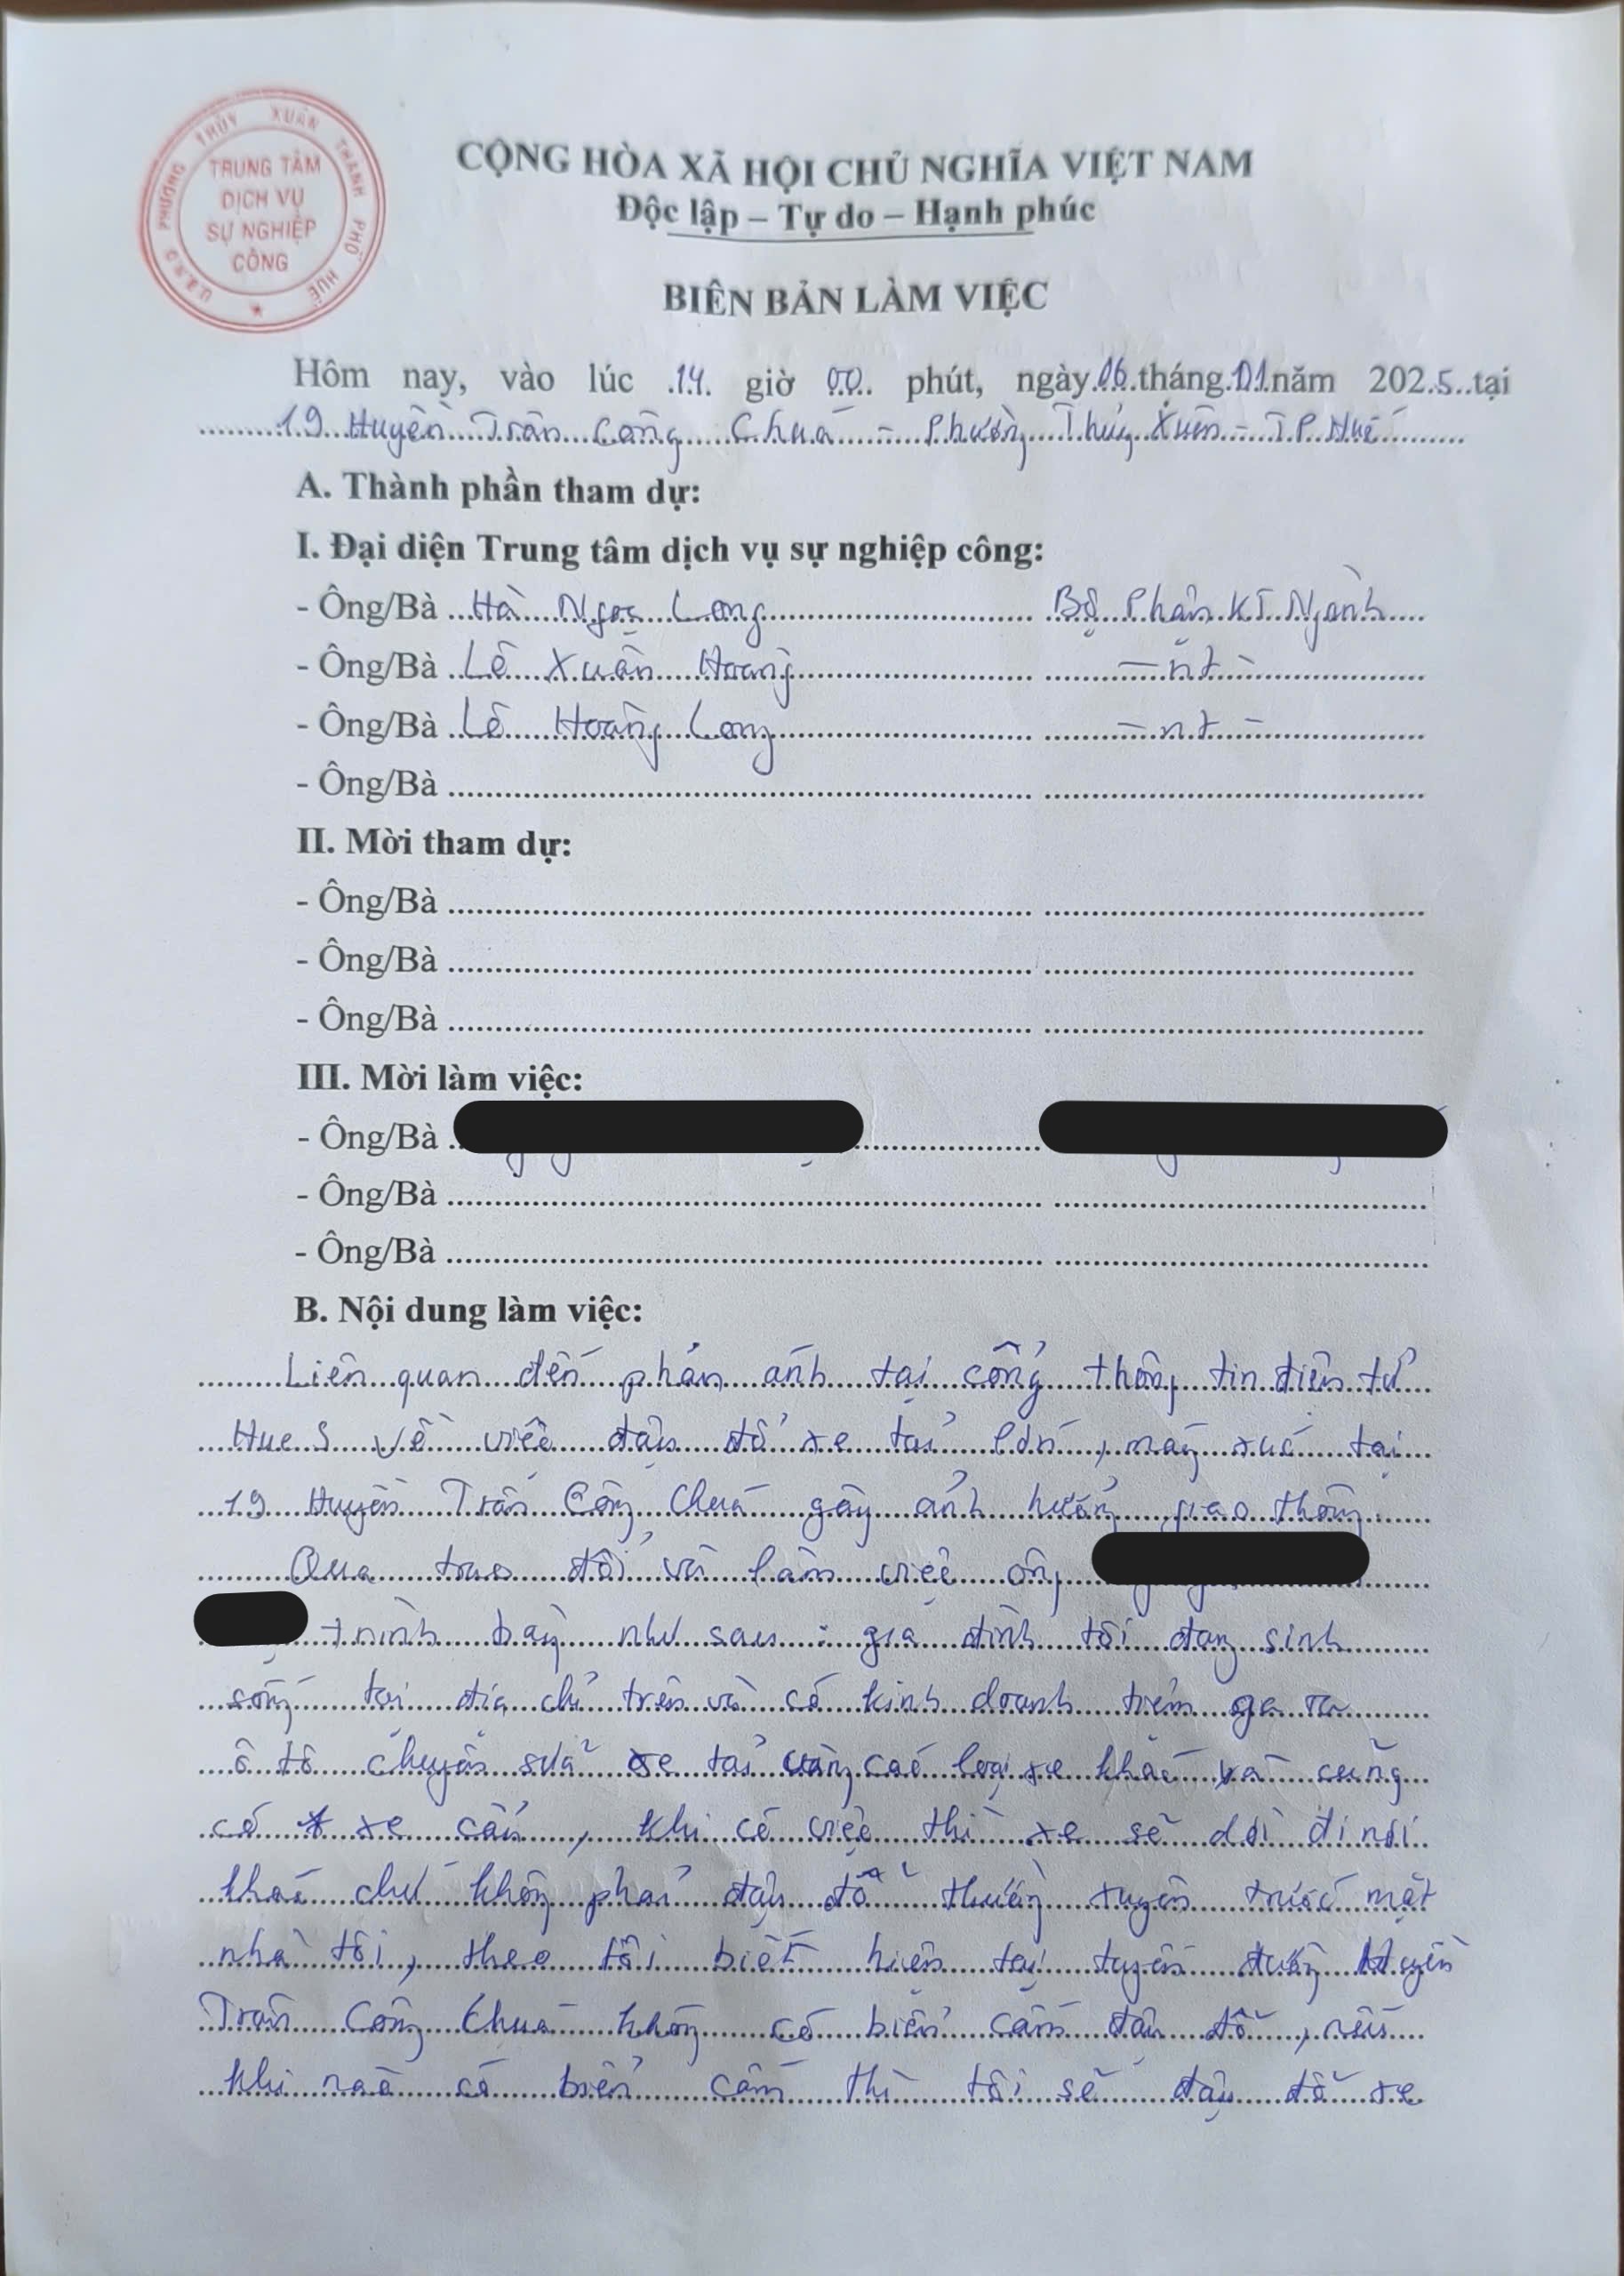 U.B.N.D PHƯỜNG THỦY XUÂN THÀNH PHỐ HUẾ
TRUNG TÂM
DỊCH VỤ
SỰ NGHIỆP
CÔNG
CỘNG HÒA XÃ HỘI CHỦ NGHĨA VIỆT NAM
Độc lập – Tự do – Hạnh phúc
BIÊN BẢN LÀM VIỆC
Hôm nay, vào lúc 14 giờ 00 phút, ngày 06 tháng 01 năm 2025 tại
19 Huyền Trân Công Chúa - Phường Thủy Xuân - T.P Huế
A. Thành phần tham dự:
I. Đại diện Trung tâm dịch vụ sự nghiệp công:
- Ông/Bà Hà Ngọc Long Bộ Phận KT Ngành
- Ông/Bà Lê Xuân Hoàng - nt -
- Ông/Bà Lê Hoàng Long - nt -
- Ông/Bà
II. Mời tham dự:
- Ông/Bà
- Ông/Bà
- Ông/Bà
III. Mời làm việc:
- Ông/Bà
- Ông/Bà
- Ông/Bà
B. Nội dung làm việc:
Liên quan đến phản ánh tại cổng thông tin điện tử
Hue S về việc đậu đỗ xe tải lớn, máy xúc tại
19 Huyền Trân Công Chúa gây ảnh hưởng giao thông
Qua trao đổi và làm việc ông
trình bày như sau : gia đình tôi đang sinh
sống tại địa chỉ trên và có kinh doanh tiệm ga ra
ô tô chuyên sửa xe tải cùng các loại xe khác và cũng
có xe cẩu, khi có việc thì xe sẽ dời đi nơi
khác chứ không phải đậu đỗ thường xuyên trước mặt
nhà tôi, theo tôi biết hiện tại tuyến đường Huyền
Trân Công Chúa không có biển cấm đậu đỗ, nếu
khi nào có biển cấm thì tôi sẽ đậu đỗ xe